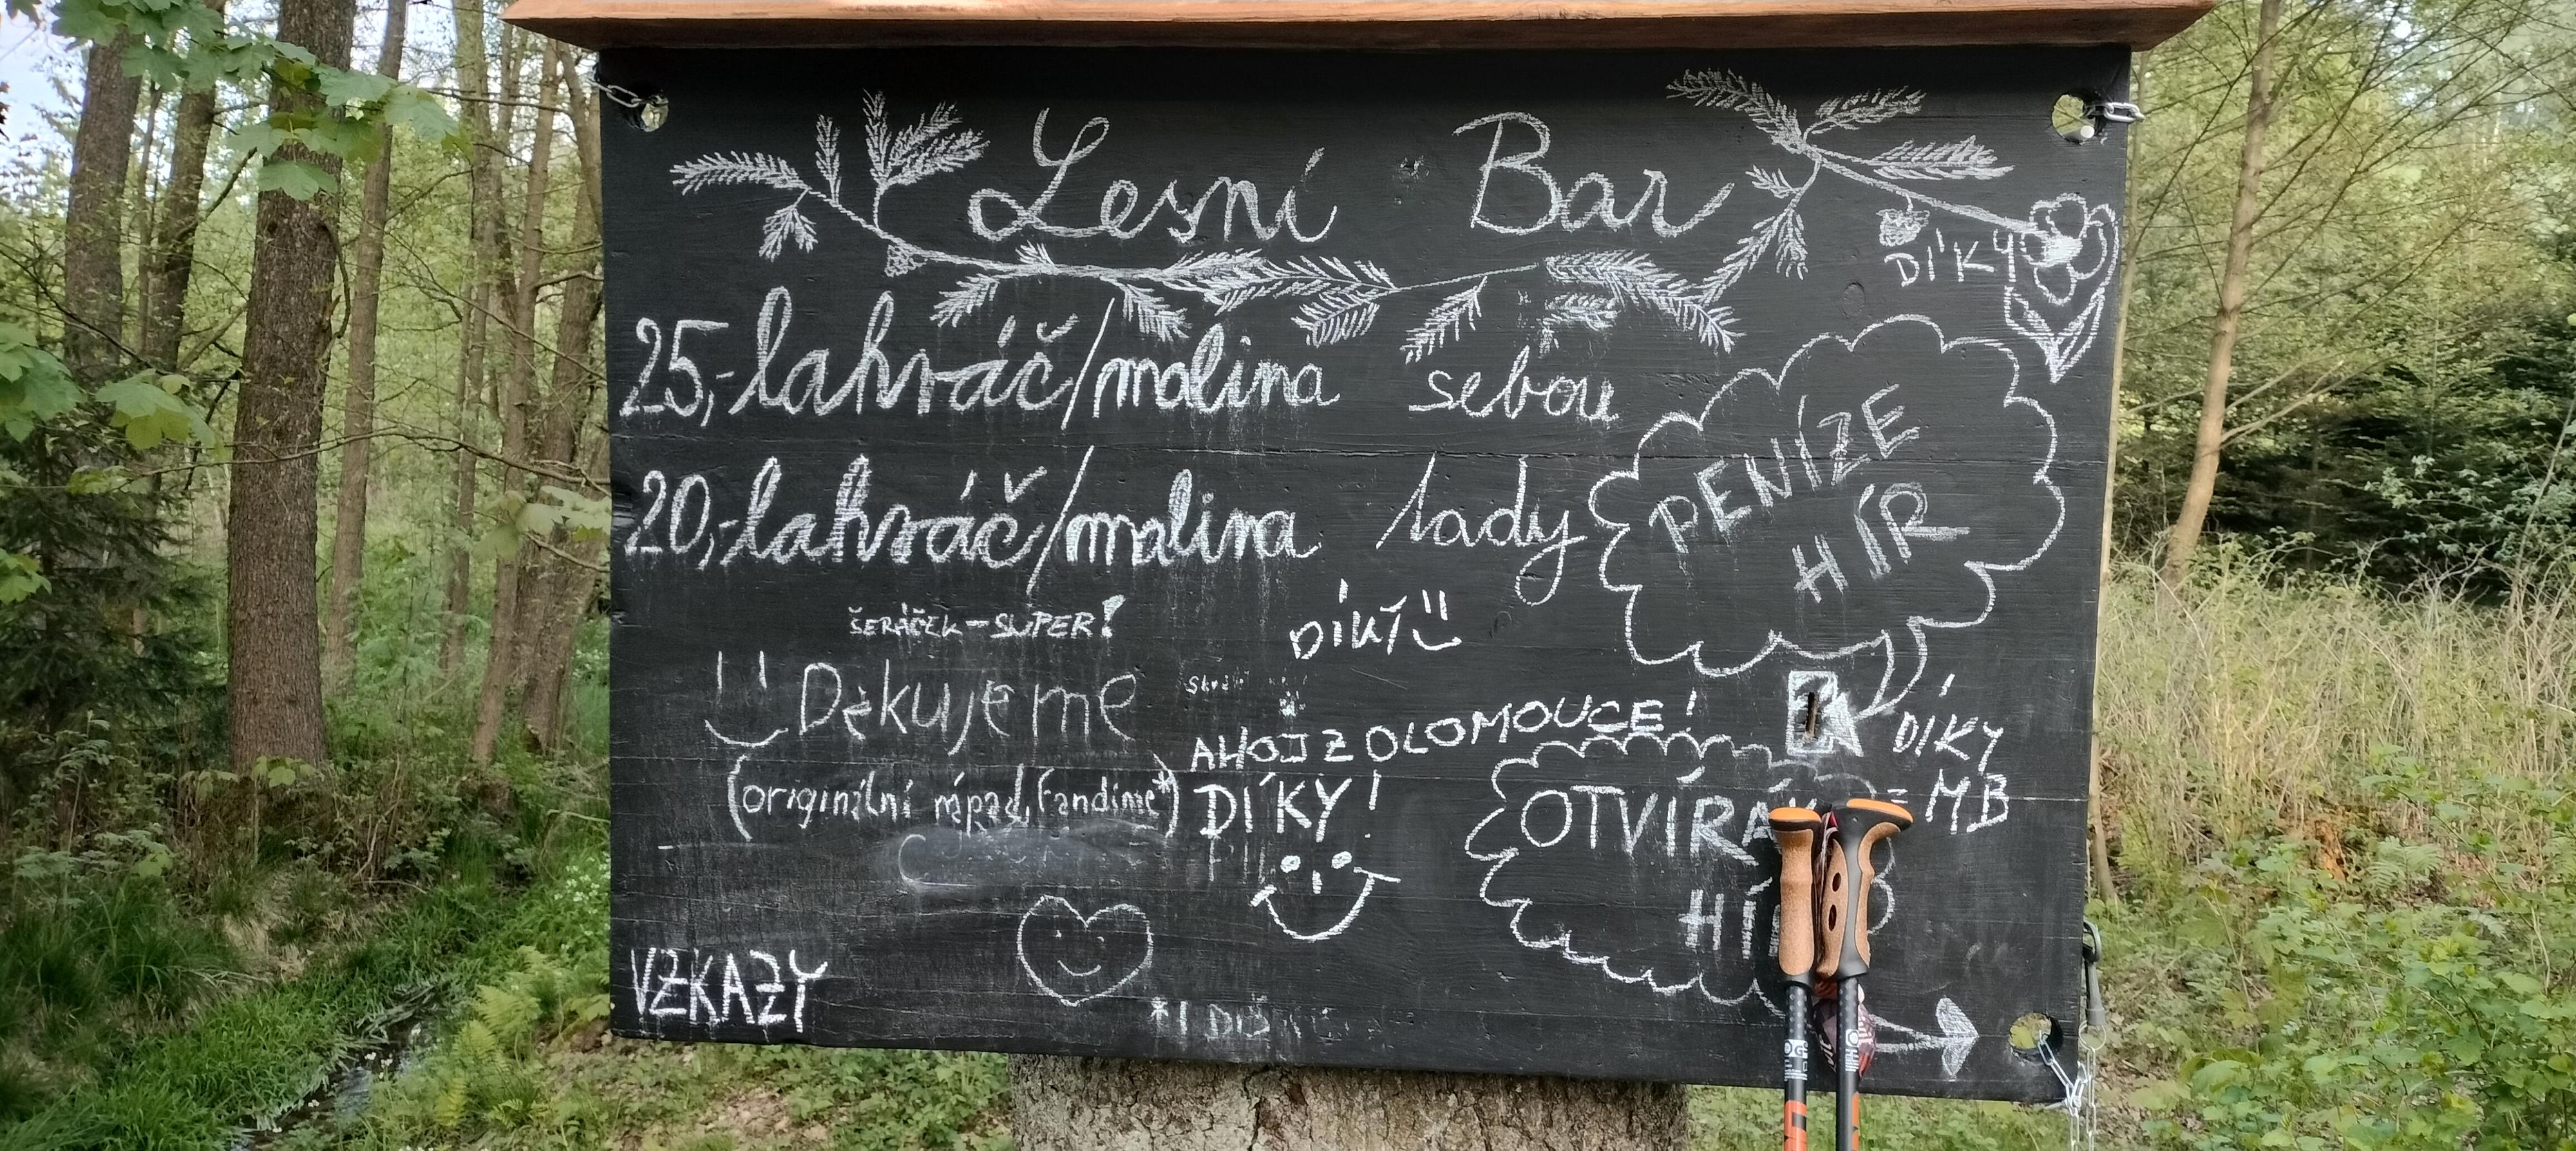 Lesní Bar
DÍKY
25,- lahváč/malina sebou
20,- lahváč/malina tady
PENÍZE
HÍR
ŠERÁČEK - SUPER!
DÍKY
Děkujeme
AHOJ Z OLOMOUCE!
DÍKY
MB
(originální nápad, fandíme*)
DÍKY!
OTVÍRÁ
HÍ
VZKAZY